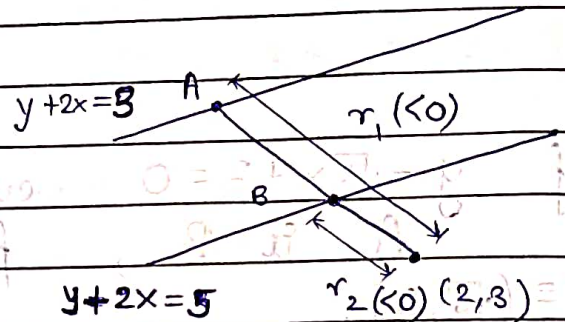 A
y+2x=3
r₁ (<0)
B
y+2x=5
r₂(<0) (2,3)